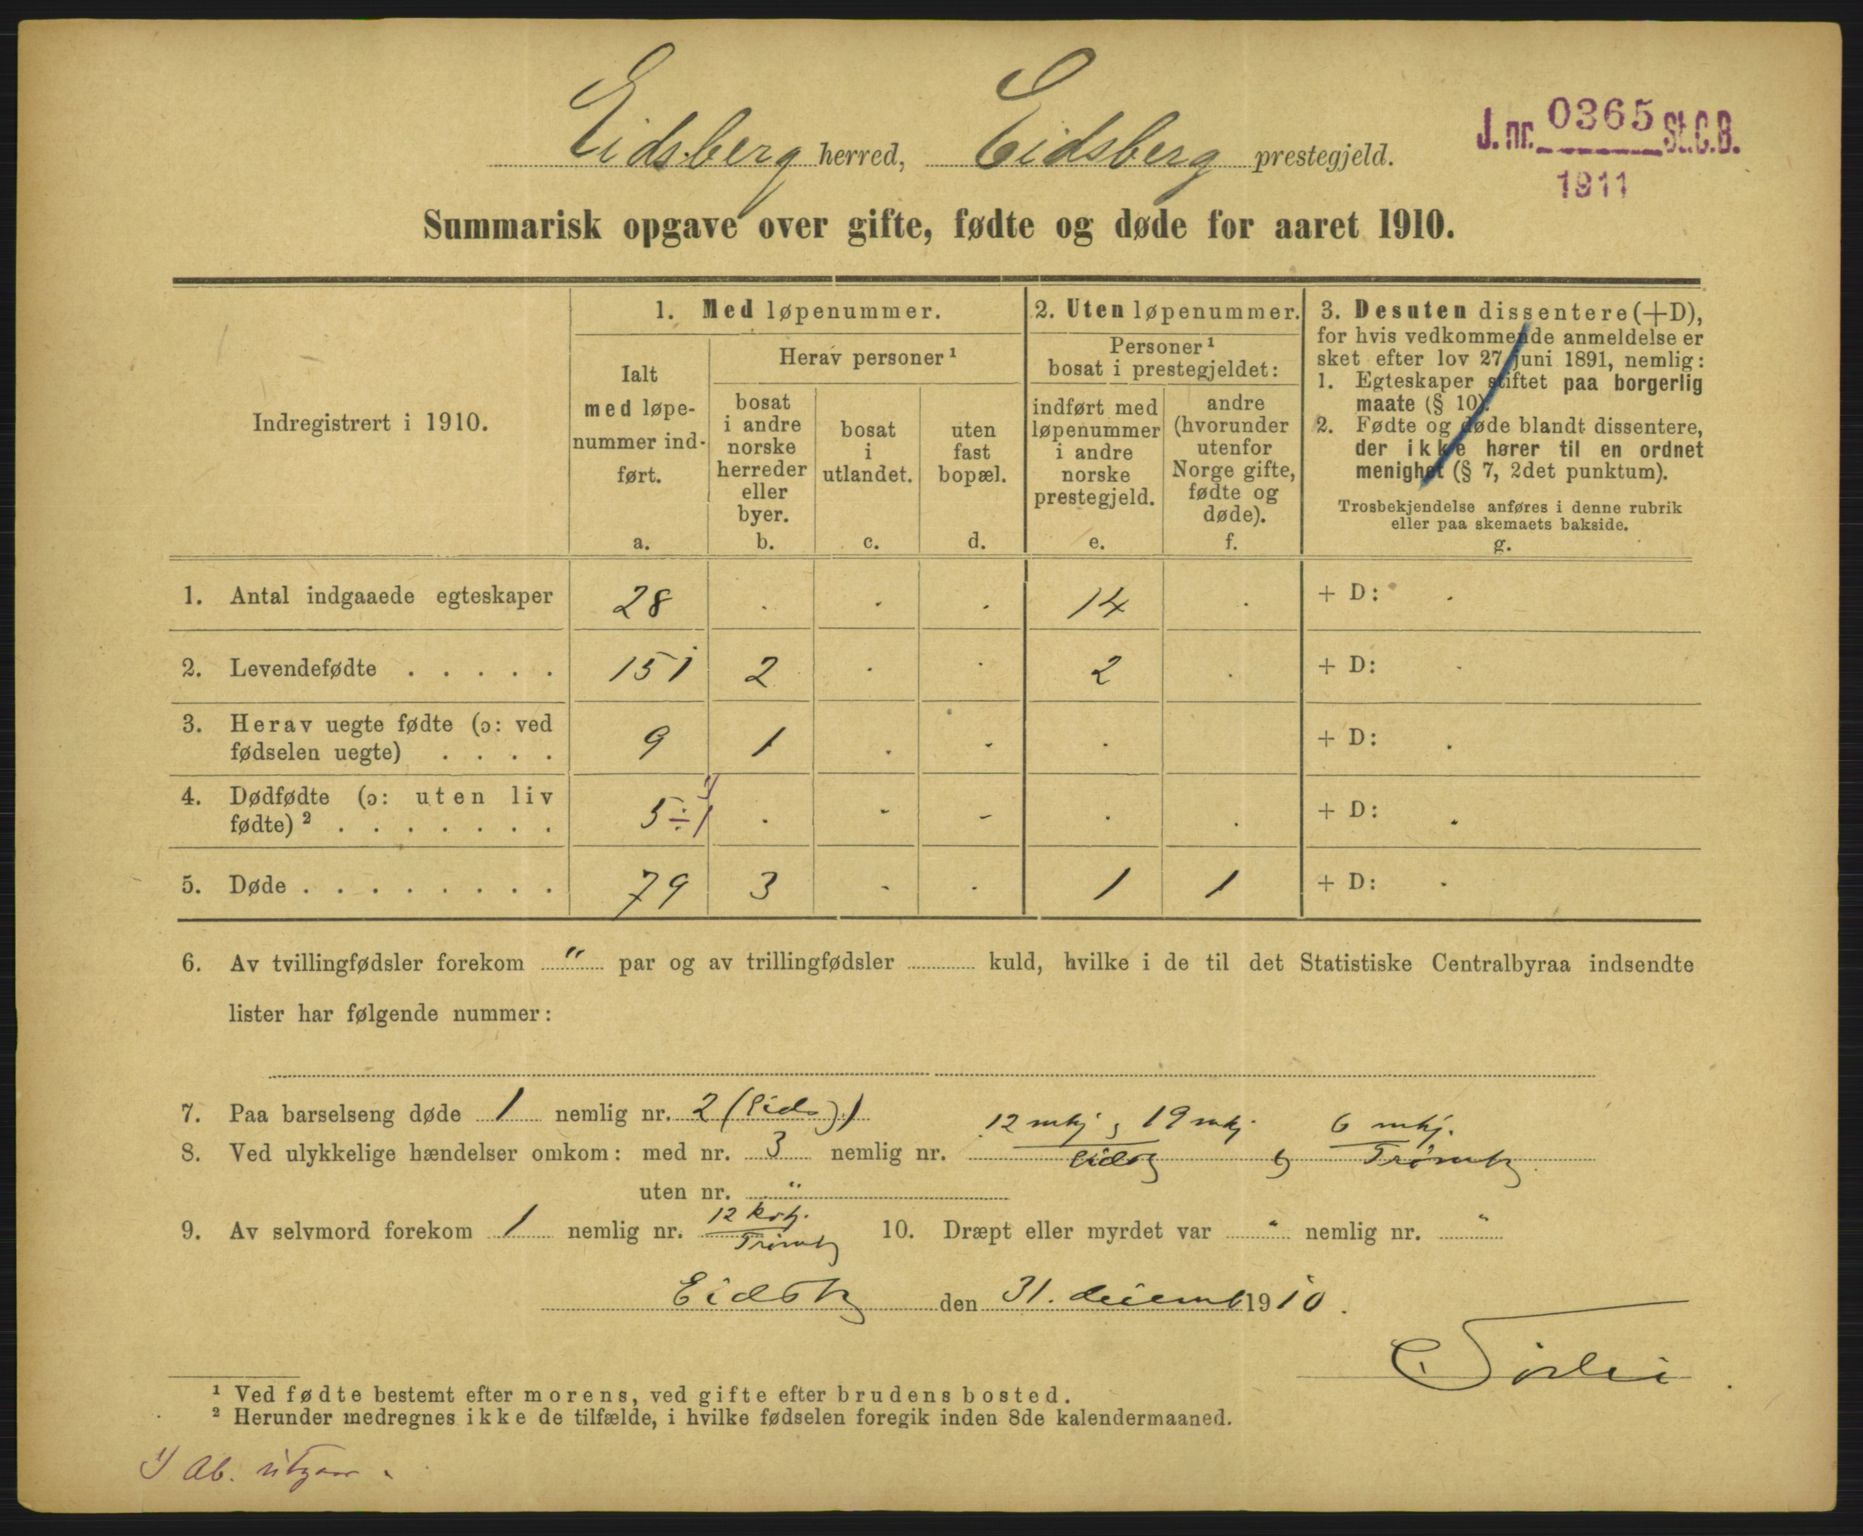 Eidsberg herred, Eidsberg prestegjeld.
J. nr. 0365 St. C. B.
1911
Summarisk opgave over gifte, fødte og døde for aaret 1910.
Indregistrert i 1910.
1. Med løpenummer.
Ialt med løpe-
nummer ind-
ført.
a.
Herav personer ¹
bosat
i andre
norske
herreder
eller
byer.
b.
bosat
i
utlandet.
c.
uten
fast
bopæl.
d.
2. Uten løpenummer.
Personer ¹
bosat i prestegjeldet:
indført med
løpenummer
i andre
norske
prestegjeld.
e.
andre
(hvorunder
utenfor
Norge gifte,
fødte og
døde).
f.
3. Desuten dissentere (+D),
for hvis vedkommende anmeldelse er
sket efter lov 27 juni 1891, nemlig:
1. Egteskaper stiftet paa borgerlig
maate (§ 10).
2. Fødte og døde blandt dissentere,
der ikke hører til en ordnet
menighet (§ 7, 2det punktum).
Trosbekjendelse anføres i denne rubrik
eller paa skemaets bakside.
g.
1. Antal indgaaede egteskaper 28 . . . 14 . + D: .
2. Levendefødte . . . . . 151 2 . . 2 . + D: .
3. Herav uegte fødte (ɔ: ved
fødselen uegte) . . . . 9 1 . - . + D: .
4. Dødfødte (ɔ: uten liv
fødte) ² . . . . . . . 5 ÷ 1 ¹) . - - . . + D: .
5. Døde . . . . . . . . 79 3 - . 1 1 + D: .
6. Av tvillingfødsler forekom " par og av trillingfødsler kuld, hvilke i de til det Statistiske Centralbyraa indsendte
lister har følgende nummer:
7. Paa barselseng døde 1 nemlig nr. 2 (Eidsb.)
8. Ved ulykkelige hændelser omkom: med nr. 3 nemlig nr. 12 mkj, 19 mkj. Eidsb. 6 mkj. Trømb.
uten nr. "
9. Av selvmord forekom 1 nemlig nr. 12 kvkj. Trømb. 10. Dræpt eller myrdet var " nemlig nr. "
Eidsb. den 31. decemb 1910.
¹ Ved fødte bestemt efter morens, ved gifte efter brudens bosted.
² Herunder medregnes ikke de tilfælde, i hvilke fødselen foregik inden 8de kalendermaaned.
¹) Ab. utgaar.